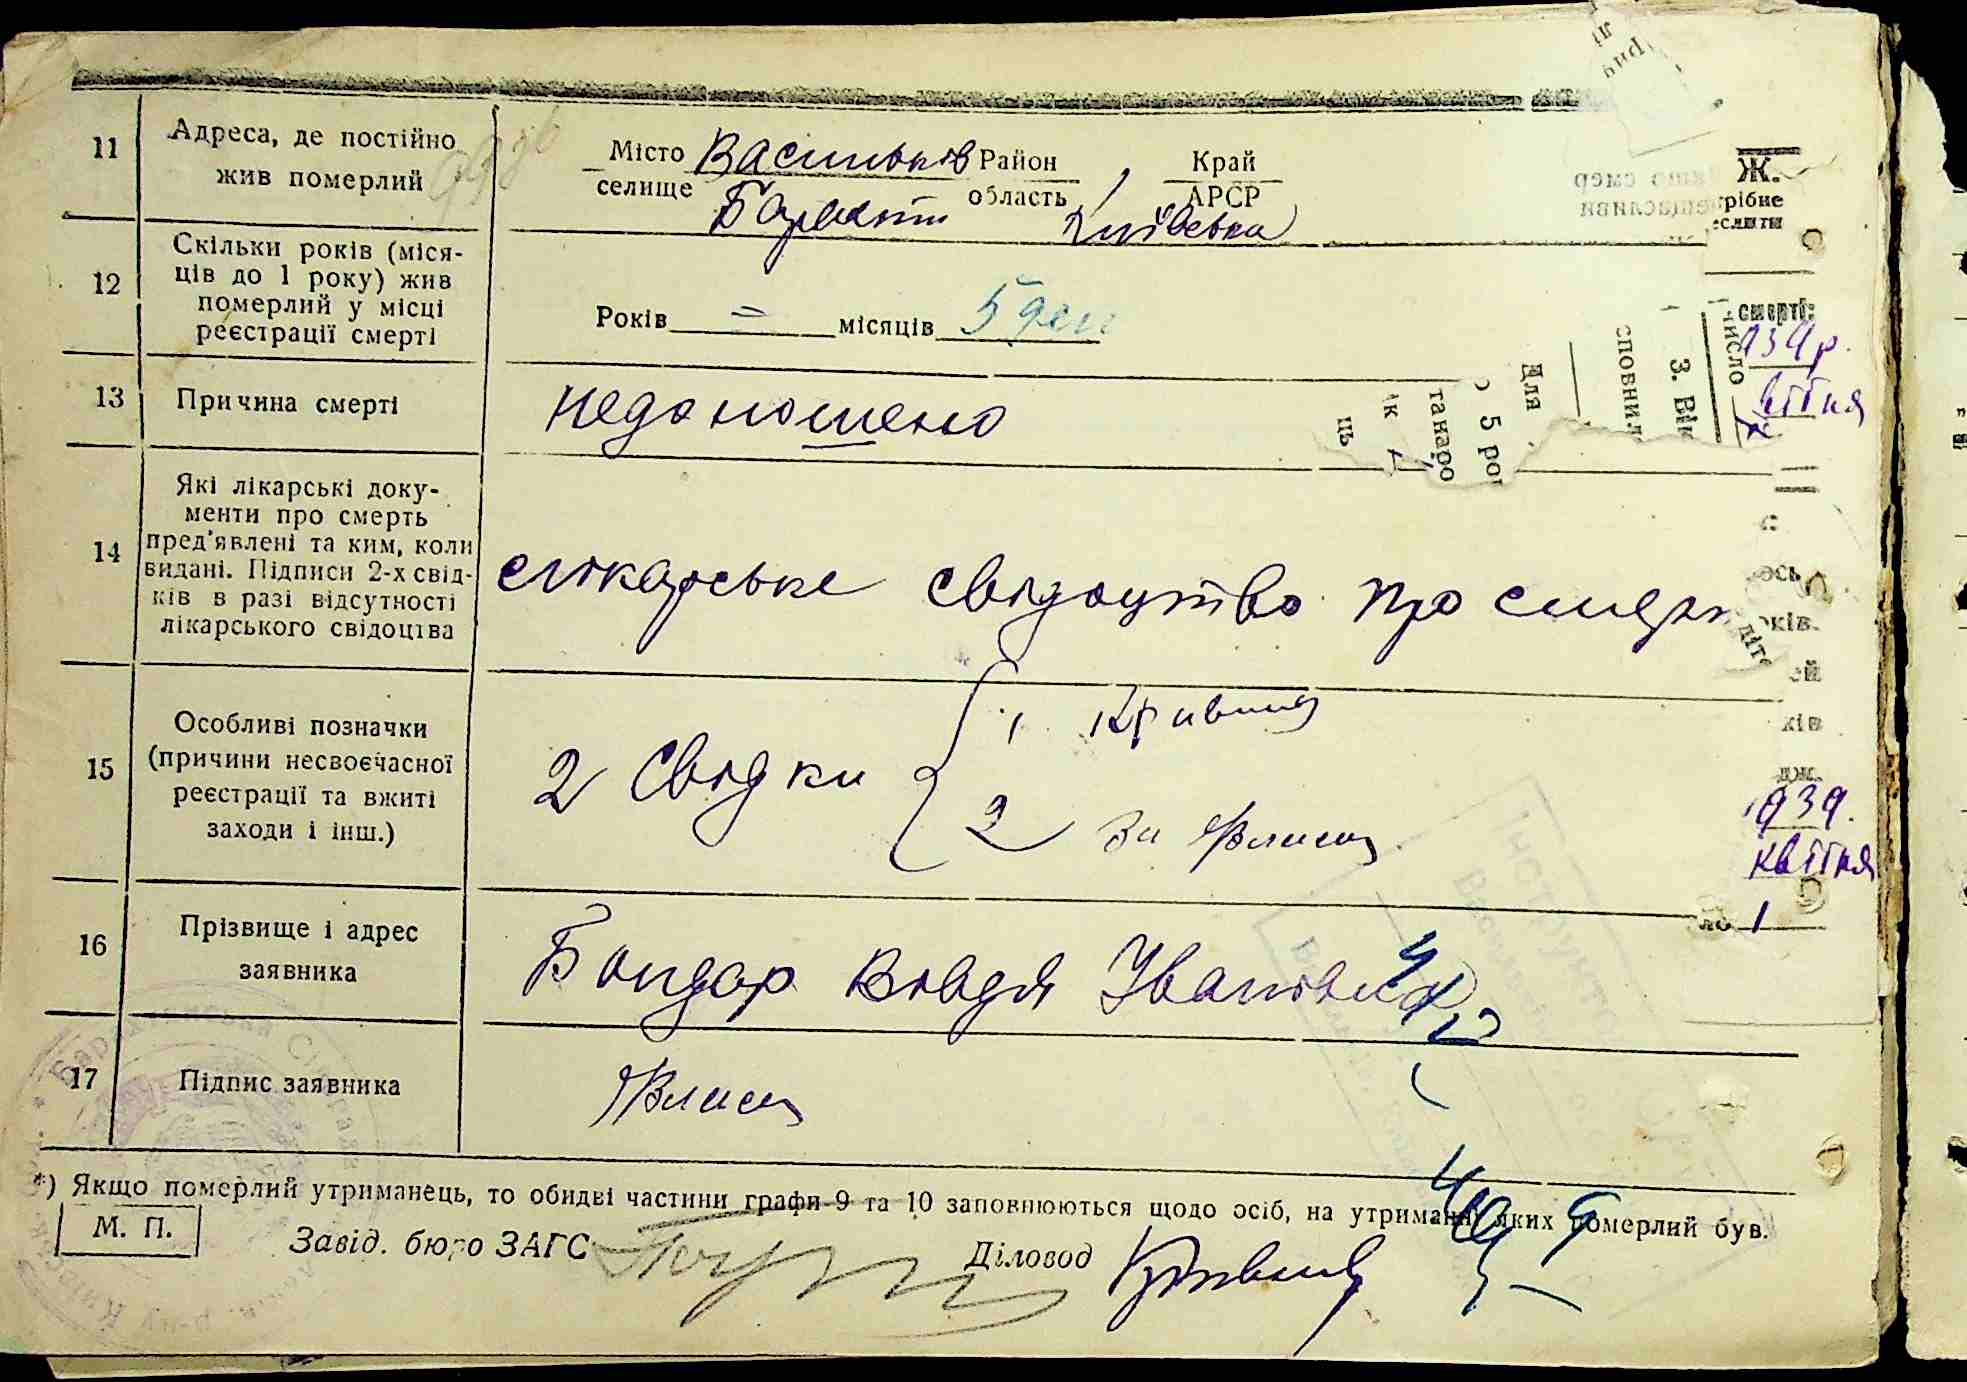 11 Адреса, де постійно
жив померлий
Місто Васильків Район Край
селище область АРСР
Київська
12 Скільки років (міся-
ців до 1 року) жив
померлий у місці
реєстрації смерті
Років = місяців 5 ден
13 Причина смерті
недоношено
14 Які лікарські доку-
менти про смерть
пред'явлені та ким, коли
видані. Підписи 2-х свід-
ків в разі відсутності
лікарського свідоцтва
лікарське свідоцтво про смерт
15 Особливі позначки
(причини несвоєчасної
реєстрації та вжиті
заходи і інш.)
2 Свідки
1
2 За
16 Прізвище і адрес
заявника
Бондар Івановна
17 Підпис заявника
*) Якщо померлий утриманець, то обидві частини графи 9 та 10 заповнюються щодо осіб, на утриманні яких померлий був.
М. П.
Завід. бюро ЗАГС
Діловод
Ж.
смерті:
число
квітня
3. Вік
сповнил
Для
5 рок
1939.
квітня
1